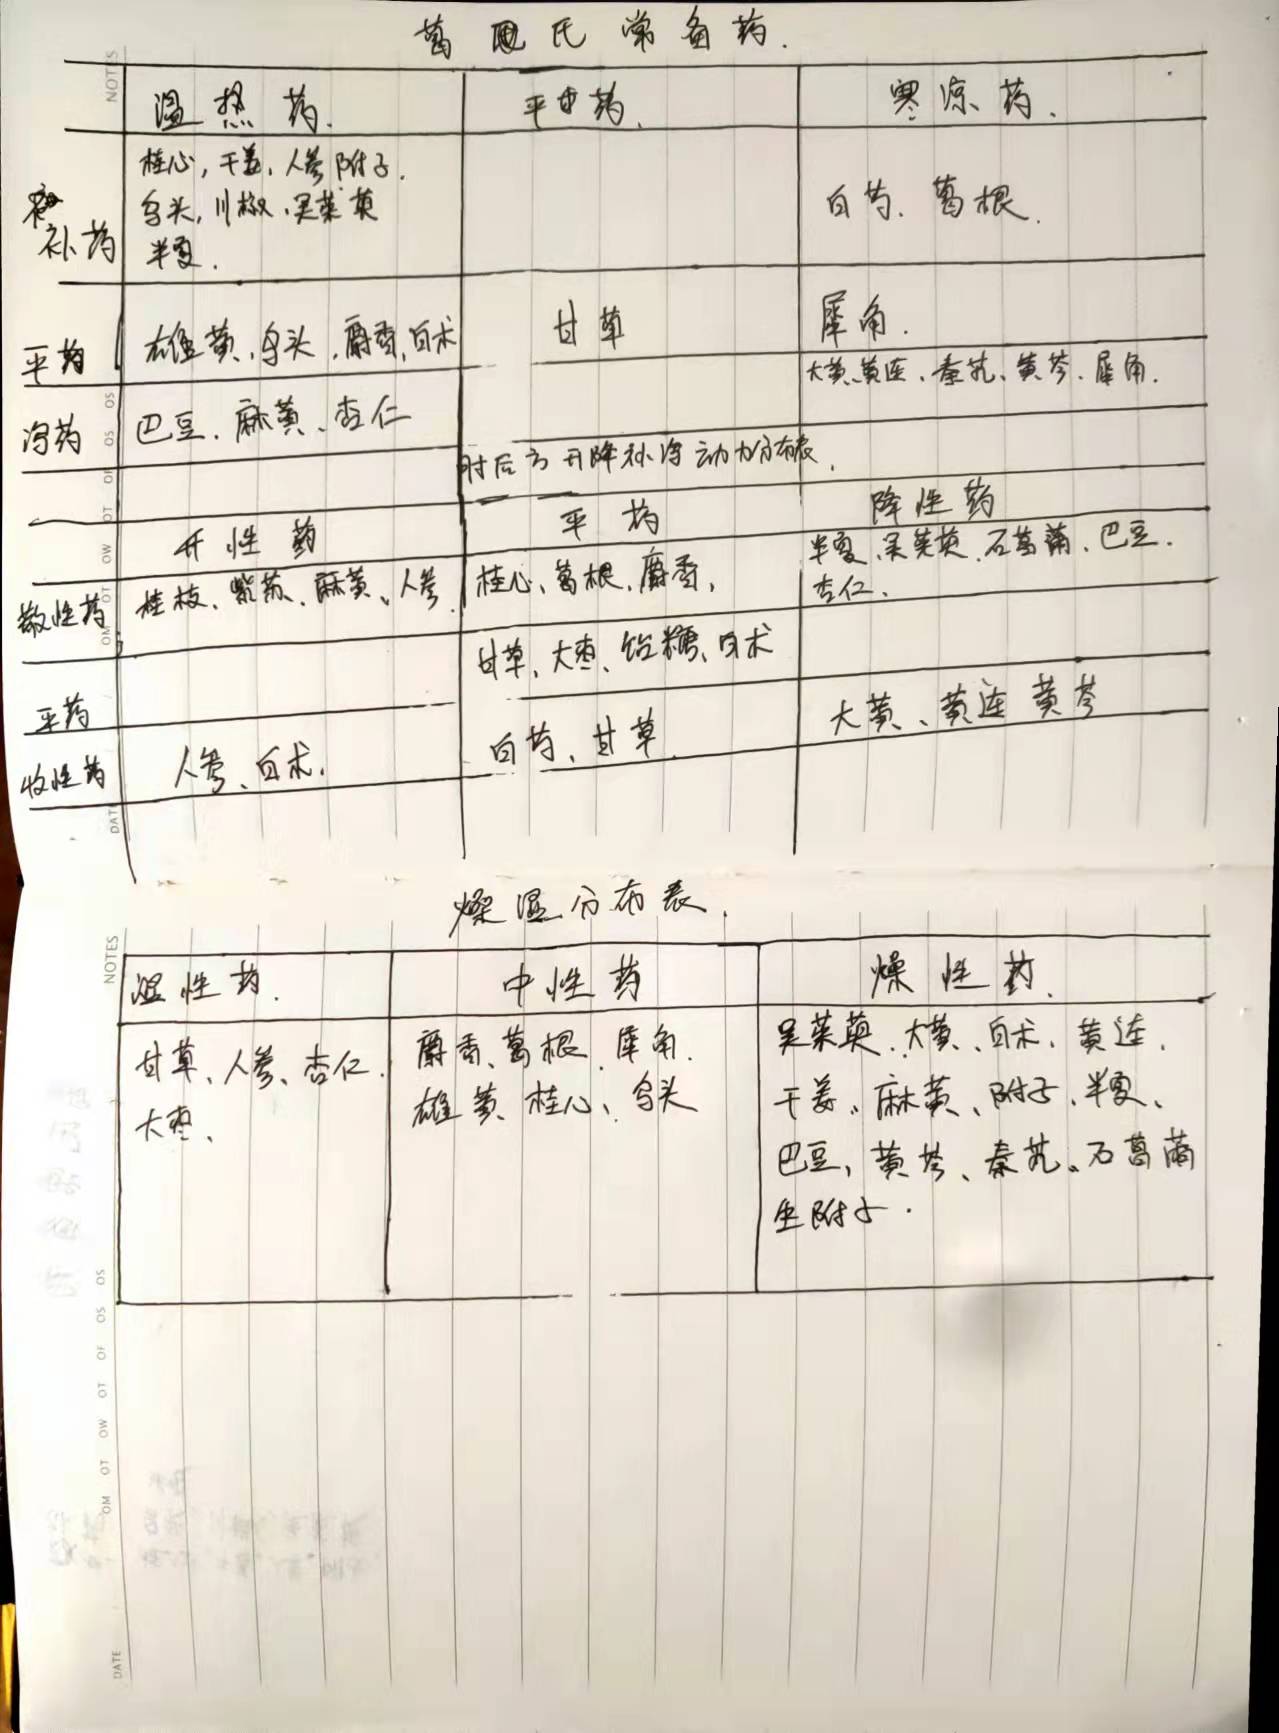 葛氏常备药.
温热药.
平中药.
寒凉药.
补药
桂心,干姜,人参附子.
乌头,川椒,吴茱萸
半夏.
白芍、葛根.
平药
雄黄、乌头,麝香,白术
甘草
犀角.
大黄、黄连、秦艽、黄芩、犀角.
泻药
巴豆、麻黄、杏仁
肘后方升降补泻动力分布表.
升性药
平药
降性药
散性药
桂枝、紫苏、麻黄、人参.
桂心、葛根、麝香,
半夏、吴茱萸、石菖蒲、巴豆.
杏仁.
甘草、大枣、饴糖、白术
平药
收性药
人参、白术.
白芍、甘草.
大黄、黄连 黄芩
燥湿分布表.
湿性药.
中性药
燥性药.
甘草、人参、杏仁.
大枣、
麝香、葛根、犀角.
雄黄、桂心、乌头
吴茱萸、大黄、白术、黄连.
干姜、麻黄、附子、半夏、
巴豆,黄芩、秦艽、石菖蒲
生附子.
NOTES
OM OT OW OT OF OS OS
DATE
NOTES
OM OT OW OT OF OS OS
DATE